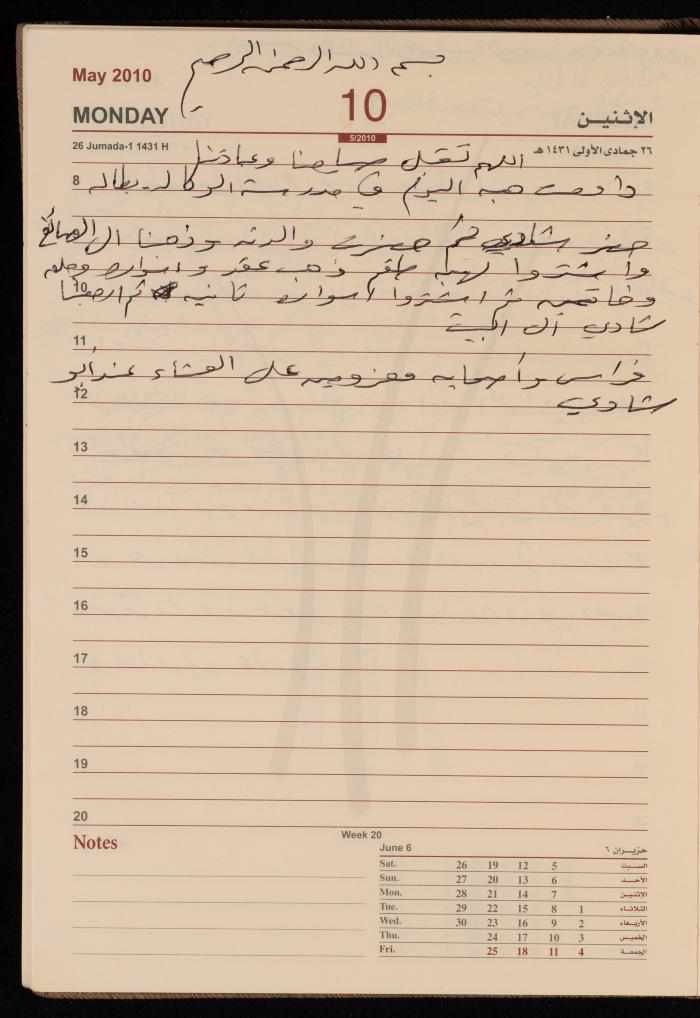 بسم الله الرحمن الرحيم
May 2010
MONDAY 10 الإثنين
5/2010
26 Jumada-1 1431 H ٢٦ جمادى الأولى ١٤٣١ هـ
اللهم تقبل صيامنا وعبادتنا
8 داومت هبه اليوم في مدرسة الوكاله بطاله
حضر شادي ثم حضرت والدته وذهبنا ال الصائغ
واشتروا لهبه طقم ذهب عقد واسواره وحلقه
10 وخاتمه ثم اشتروا اسواره ثانيه ثم ارجعنا
شادي ال البيت
11
فراس وأصحابه معزومين على العشاء عند أبو
12 شادي
13
14
15
16
17
18
19
20
Notes
Week 20
June 6 حزيران ٦
Sat. 26 19 12 5 السبت
Sun. 27 20 13 6 الأحد
Mon. 28 21 14 7 الإثنين
Tue. 29 22 15 8 1 الثلاثاء
Wed. 30 23 16 9 2 الأربعاء
Thu. 24 17 10 3 الخميس
Fri. 25 18 11 4 الجمعة